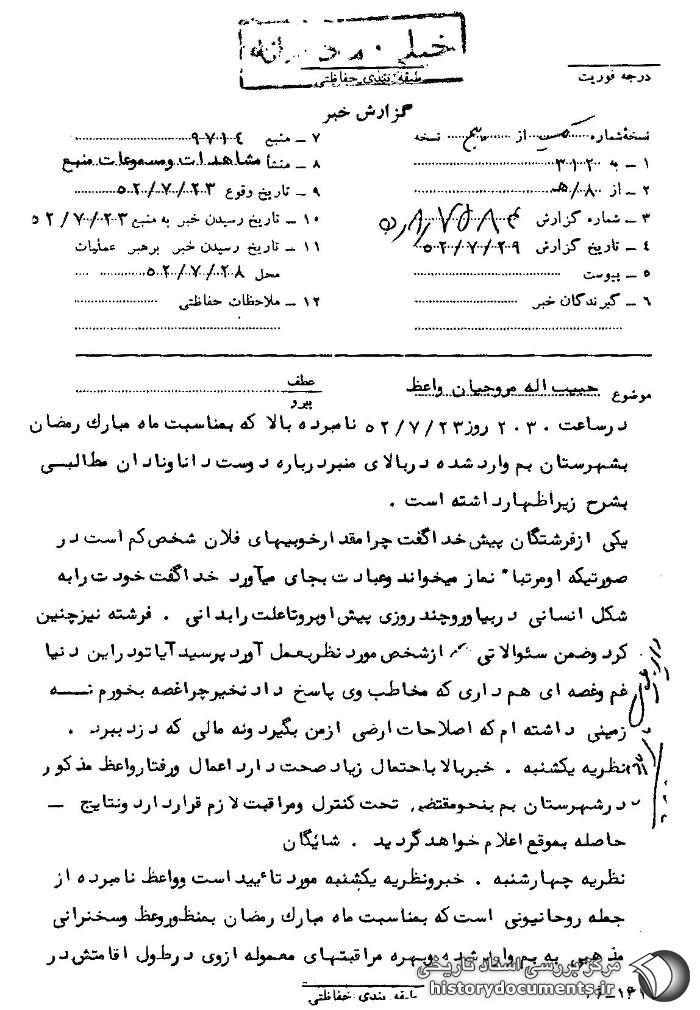 خیلی محرمانه
طبقه بندی حفاظتی
درجه فوریت
گزارش خبر
نسخهٔ شماره از پنج نسخه
۱ - به ۳۱۲
۲ - از ۸/هـ
۳ - شماره گزارش
۴ - تاریخ گزارش ۵۲/۷/۲۹
۵ - پیوست
۶ - گیرندگان خبر
۷ - منبع ۹۷۱۴
۸ - منشأ مشاهدات ومسموعات منبع
۹ - تاریخ وقوع ۵۲/۷/۲۳
۱۰ - تاریخ رسیدن خبر به منبع ۵۲/۷/۲۳
۱۱ - تاریخ رسیدن خبر برهبر عملیات
محل ۵۲/۷/۲۸
۱۲ - ملاحظات حفاظتی
موضوع حبیب اله مروجیان واعظ
عطف
پیرو
درساعت ۲۰۳۰ روز ۵۲/۷/۲۳ نامبرده بالا که بمناسبت ماه مبارک رمضان
بشهرستان بم وارد شده دربالای منبردرباره دوست داناونادان مطالبی
بشرح زیراظهارداشته است .
یکی ازفرشتگان پیش خداگفت چرامقدارخوبیهای فلان شخص کم است در
صورتیکه اومرتبا" نماز میخواند وعبادت بجای میآورد خداگفت خودت رابه
شکل انسانی دربیاوروچند روزی پیش اوبروتاعلت رابدانی . فرشته نیزچنین
کرد وضمن سئوالاتی که ازشخص مورد نظربعمل آورد پرسید آیاتودراین دنیا
غم وغصه ای هم داری که مخاطب وی پاسخ داد نخیرچراغصه بخورم نه
زمینی داشته ام که اصلاحات ارضی ازمن بگیرد ونه مالی که دزد ببرد .
نظریه یکشنبه . خبربالا باحتمال زیاد صحت دارد اعمال ورفتارواعظ مذکور
درشهرستان بم بنحومقتضی تحت کنترل ومراقبت لازم قراردارد ونتایج -
حاصله بموقع اعلام خواهد گردید . شایگان
نظریه چهارشنبه . خبرونظریه یکشنبه مورد تاٴیید است وواعظ نامبرده از
جمله روحانیونی است که بمناسبت ماه مبارک رمضان بمنظوروعظ وسخنرانی
مذهبی به بم وارد شده وبهره مراقبتهای معموله ازوی درطول اقامتش در
طبقه بندی حفاظتی
مرکز بررسی اسناد تاریخی
historydocuments.ir